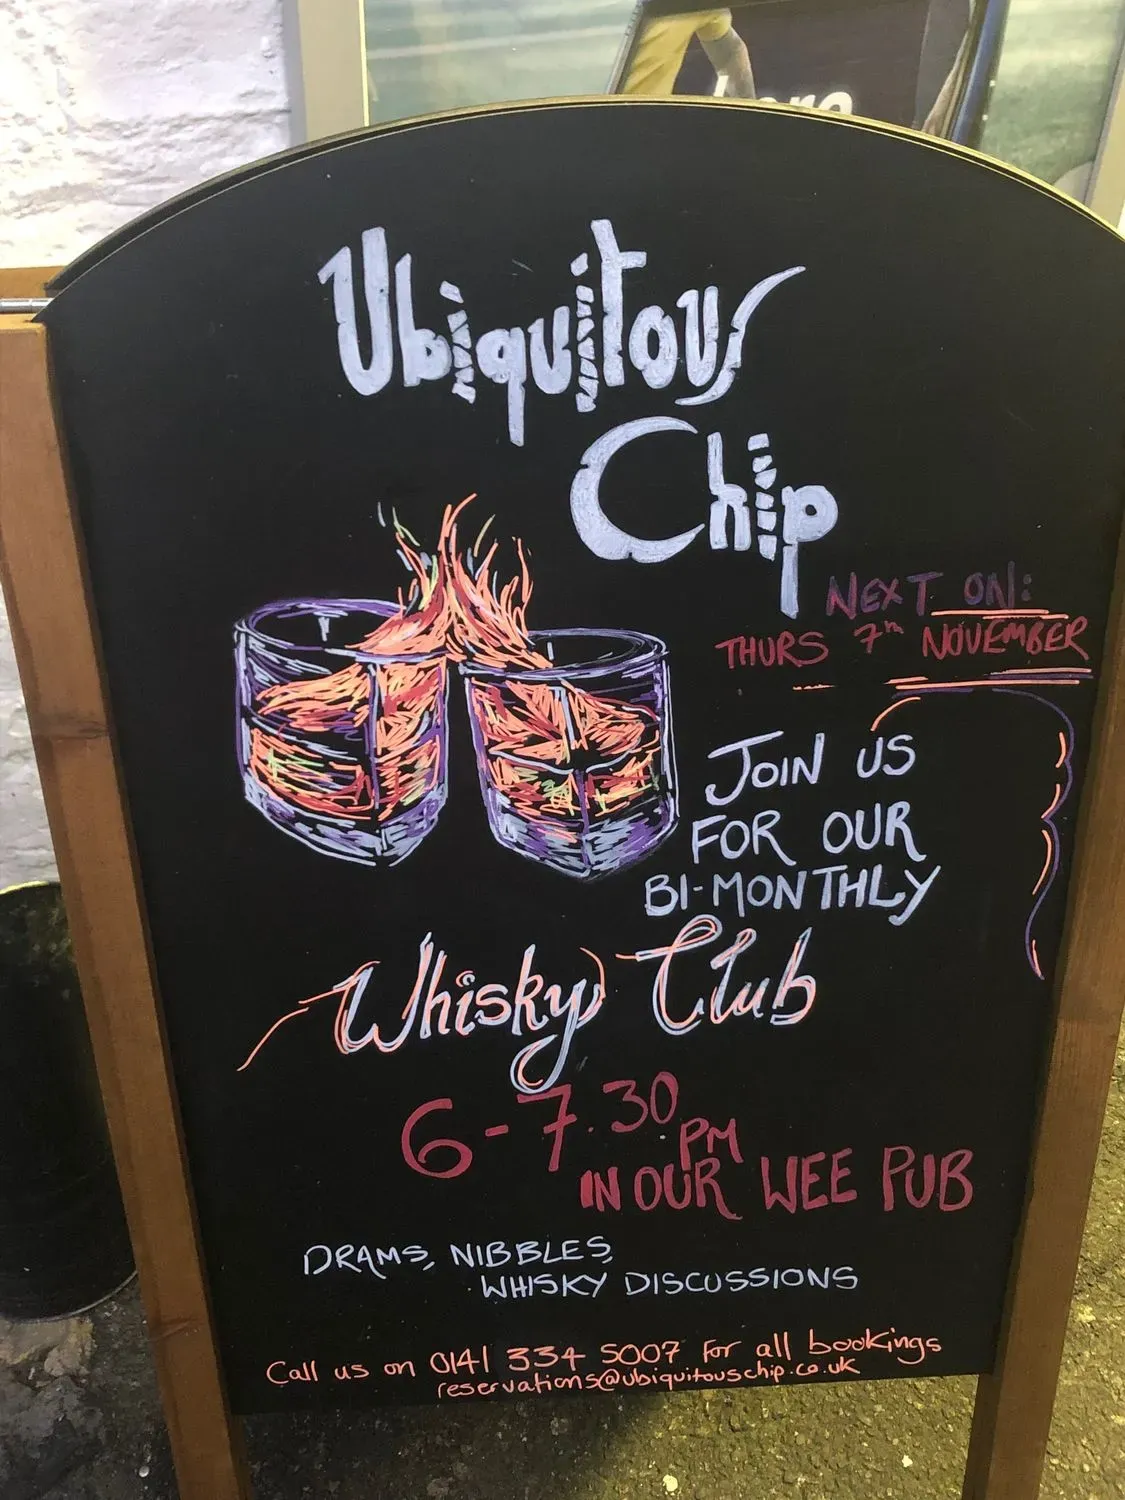 Ubiquitous
Chip
NEXT ON:
THURS 7th NOVEMBER
JOIN US
FOR OUR
BI-MONTHLY
Whisky Club
6-7.30 PM
IN OUR WEE PUB
DRAMS, NIBBLES,
WHISKY DISCUSSIONS
Call us on 0141 334 5007 for all bookings
reservations@ubiquitouschip.co.uk